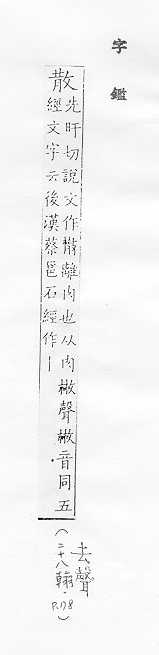 字鑑
散
先旰切說文作𢿱離肉也从肉㪔聲㪔音同五
經文字云後漢蔡邕石經作丨
去聲
(二十八翰. P.178)